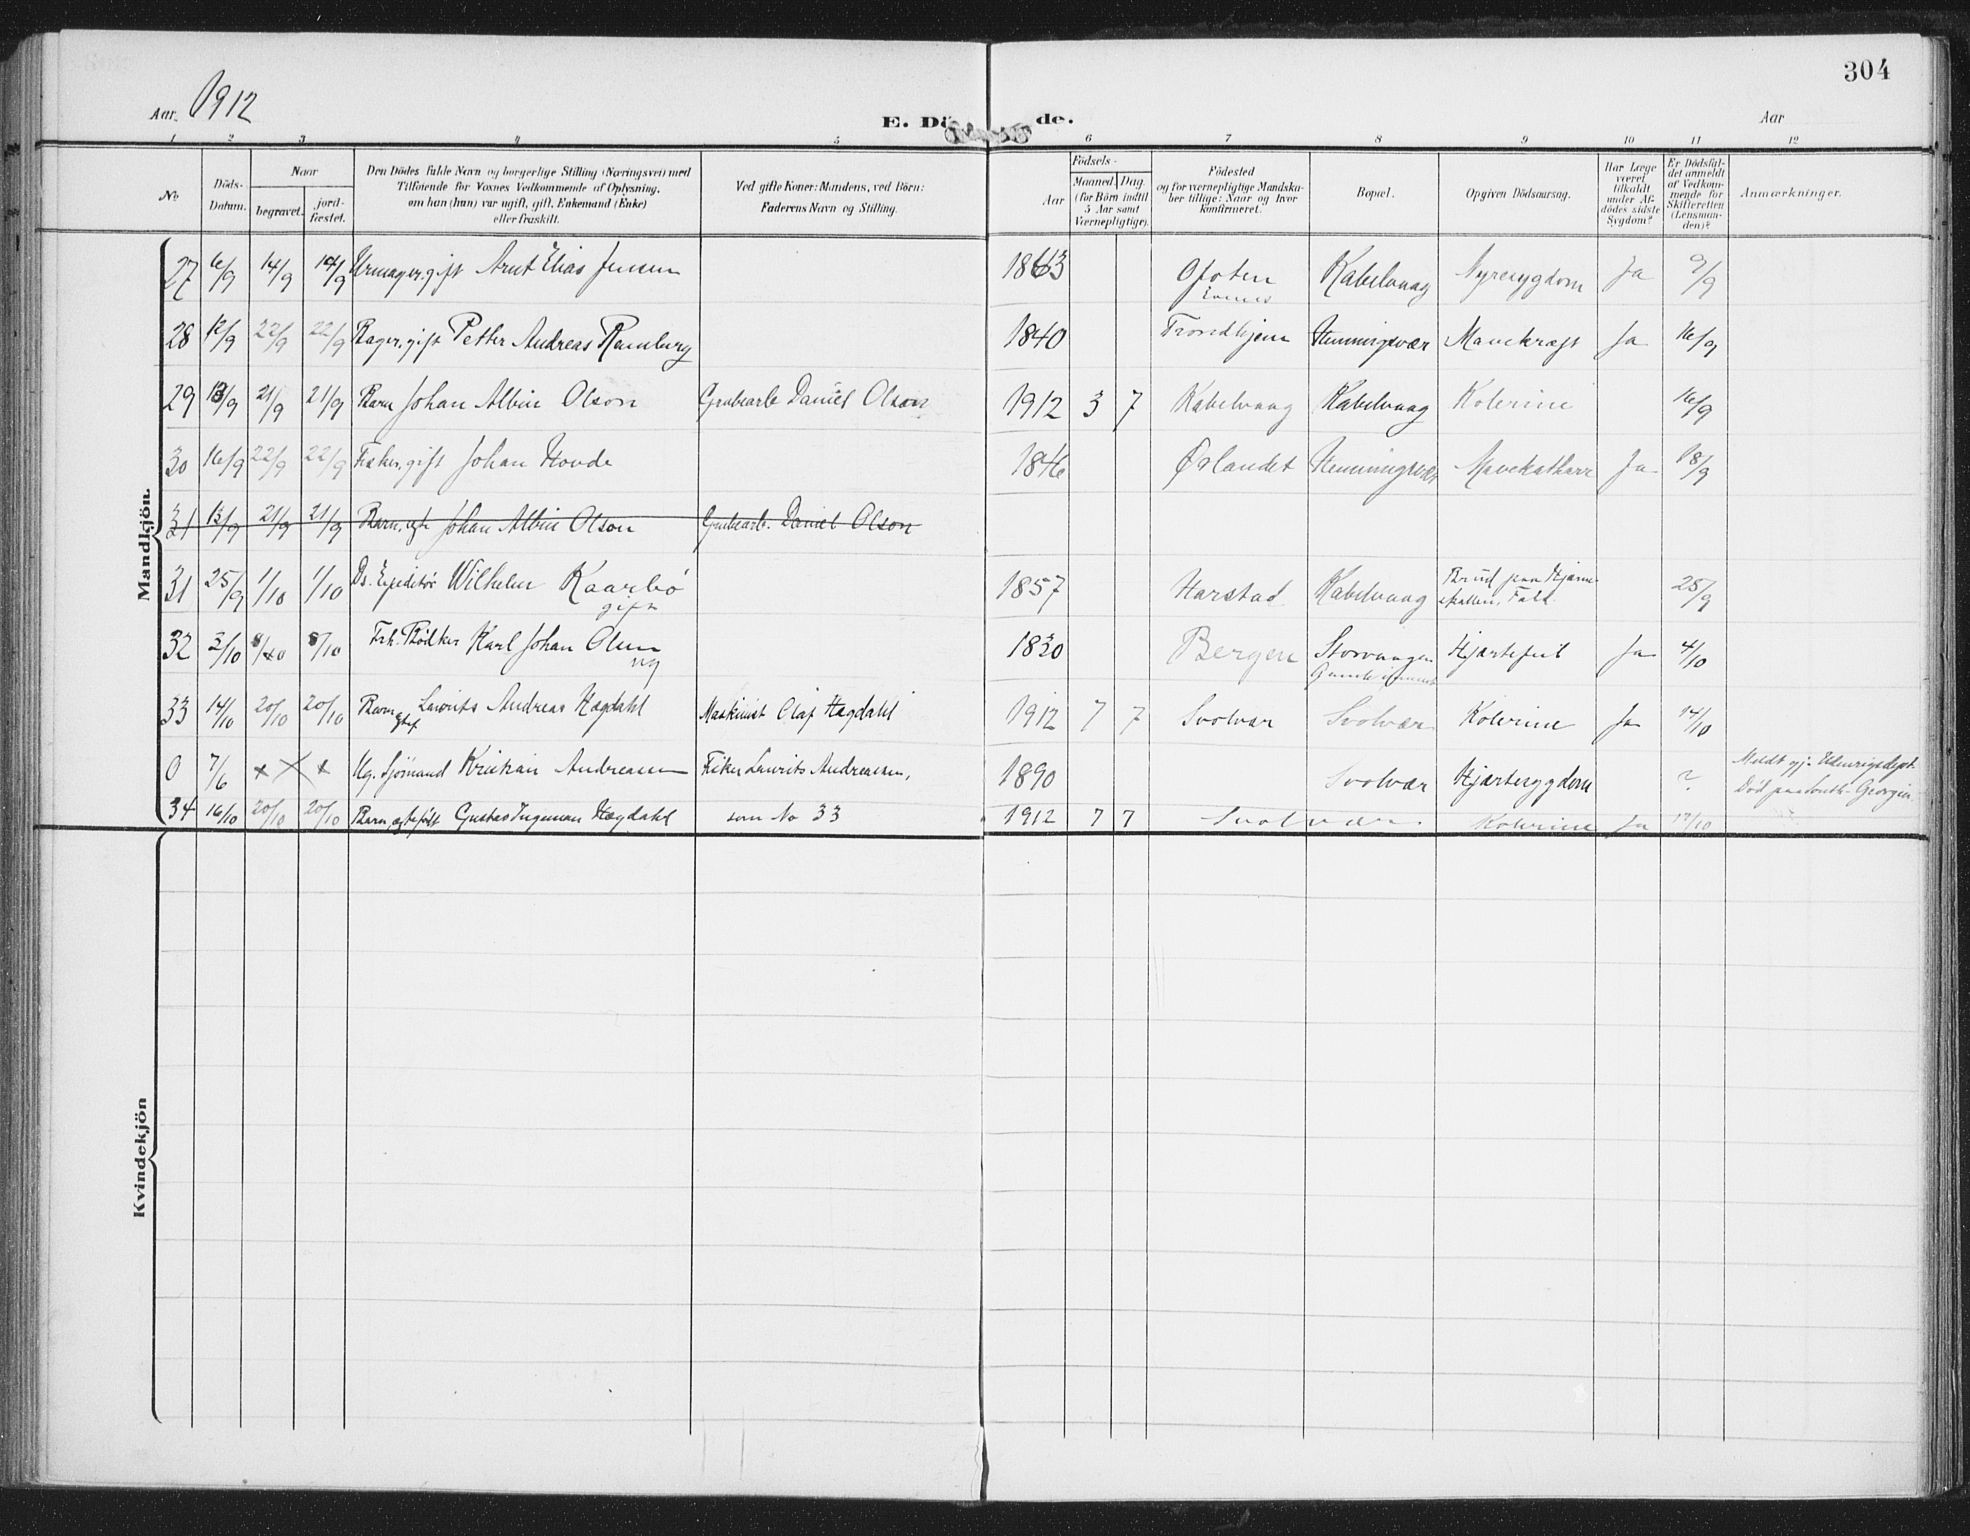 304
Aar. 1912
E. Dö de.
Aar
1 2 3 4 5 6 7 8 9 10 11 12
No
Döds-
Datum.
Naar
begravet.
jord-
fæstet.
Den Dödes fulde Navn og borgerlige Stilling (Næringsvei) med
Tilföiende for Voxnes Vedkommende af Oplysning,
om han (hun) var ugift, gift, Enkemand (Enke)
eller fraskilt.
Ved gifte Koner: Mandens, ved Börn:
Faderens Navn og Stilling.
Födsels-
Aar
Maaned. Dag.
(for Börn indtil
5 Aar samt
Værnepligtige).
Födested
og for værnepligtige Mandska-
ber tillige: Naar og hvor
Konfirmeret.
Bopæl.
Opgiven Dödsaarsag.
Har Læge
været
tilkaldt
under Af-
dödes sidste
Sygdom?
Er Dödsfal-
det anmeldt
af Vedkom-
mende for
Skifteretten
(Lensman-
den)?
Anmærkninger.
Mandkjön.
27 6/9 14/9 14/9 Urmager, gift Arnt Elias Jensen 1863 Ofoten Evenes Kabelvaag Nyresygdom Ja 9/9
28 12/9 22/9 22/9 Bager, gift Petter Andreas Ramburg 1840 Trondhjem Henningsvær Mavekræft Ja 16/9
29 13/9 21/9 21/9 Barn Johan Albin Olson Grubearb Daniel Olson 1912 3 7 Kabelvaag Kabelvaag Kolerine 16/9
30 16/9 22/9 22/9 Fisker, gift Johan Hovde 1846 Ørlandet Henningsvær Mavekatharr Ja 18/9
31 13/9 21/9 21/9 Barn, egte Johan Albin Olson Grubearb. Daniel Olson
31 25/9 1/10 1/10 Ds. Expeditör Wilhelm Kaarbö gift 1857 Harstad Kabelvaag Brud paa Hjerne-
skallen, Fald. 25/9
32 3/10 8/10 8/10 Frh. Bödker Karl Johan Olsen ug 1830 Bergen Storvaagen Hjertefeil Ja 4/10
33 14/10 20/10 20/10 Barn egtef Lavrits Andreas Hegdahl Maskinist Olaf Hegdahl 1912 7 7 Svolvær Svolvær Kolerine Ja 14/10
0 7/6 × × × Ug. Sjömand Kristian Andreassen Fisker Lavrits Andreassen, 1890 Svolvær Hjertesygdom ? Meldt gj. Udenrigsdept.
Död paa South-Georgien
34 16/10 20/10 20/10 Barn, egtefödt Gustav Ingeman Hegdahl som No 33 1912 7 7 Svolvær Kolerine Ja 17/10
Kvindekjön